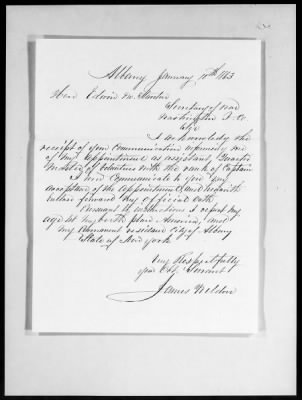 Albany January 10th 1863
Hon Edwin M. Stanton
Secretary of War
Washington D. C.
I acknowledge the
receipt of your communication informing me
of my appointment as assistant Quarter
Master of Volunteers with the rank of Captain
I now Communicate to you my
acceptance of the appointment, and herewith
forward my official oath.
Pursuant to instructions I report my
age my birth place America, and
my permanent residence City of Albany
State of New York
Very Respectfully
your Obt. Servant
James Weldon